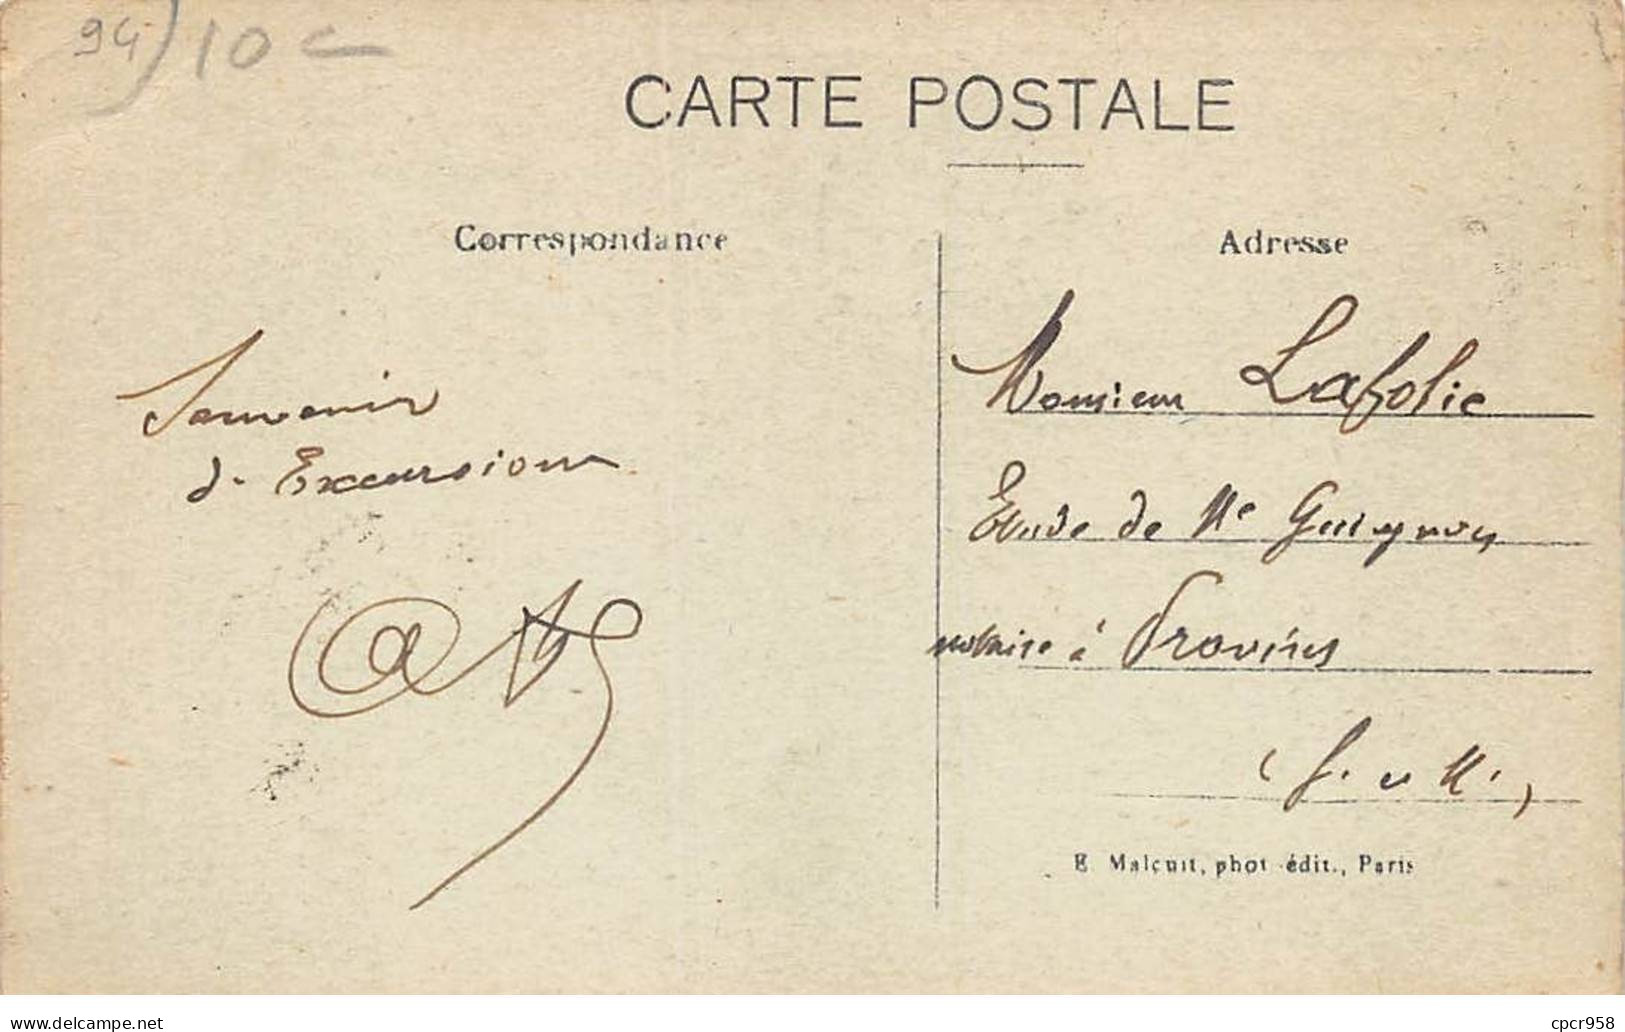 94) 10 c
CARTE POSTALE
Correspondance
Adresse
Souvenir
d' Excursion
Monsieur Lafolie
Etude de Me Guignon
notaire à Provins
(S. et M.)
E. Malcuit, phot-édit., Paris
www.delcampe.net
cpcr958